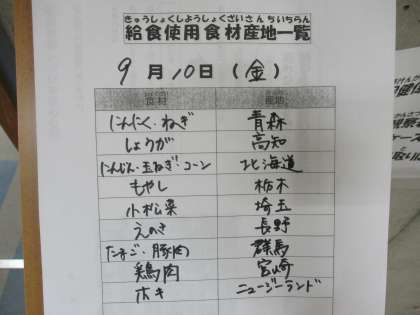 きゅうしょくしようしょくざいさんちいちらん
給食使用食材産地一覧
9月10日(金)
食材 産地
にんにく・ねぎ 青森
しょうが 高知
にんじん・玉ねぎ・コーン 北海道
もやし 栃木
小松菜 埼玉
えのき 長野
たまご・豚肉 群馬
鶏肉 宮崎
ホキ ニュージーランド